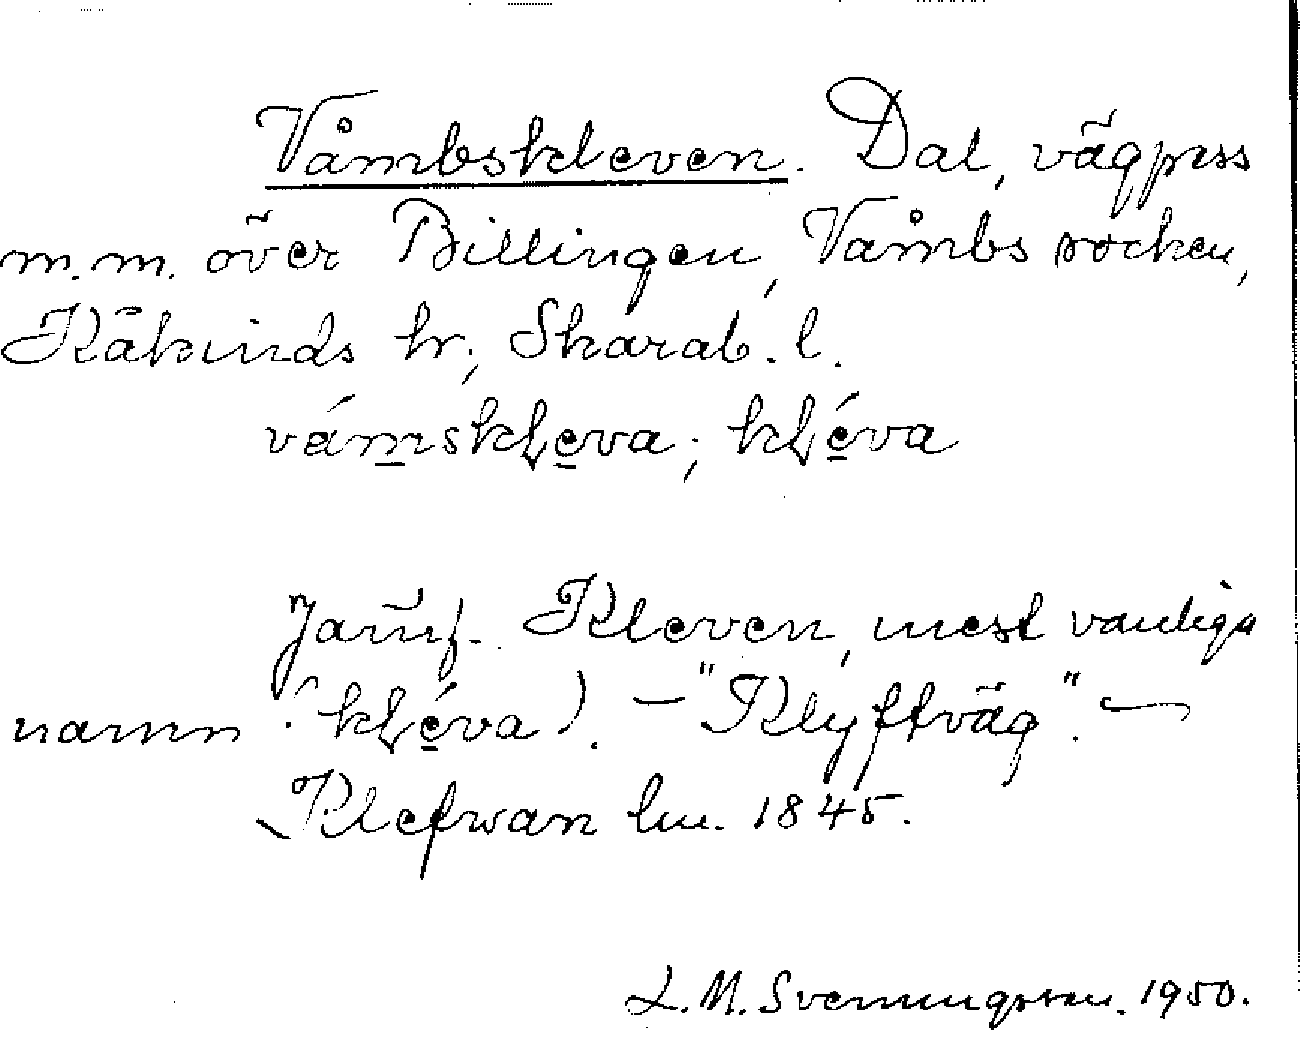 Våmbskleven. Dal, vägpass
m.m. över Billingen, Våmbs socken,
Kåkinds hr; Skarab. l.
våmskleva; kléva
Jämf. Kleven, mest vanliga
namn (kléva). – "Klyftväg". –
Klefwan lm. 1845.
L.M. Svenungsson. 1950.